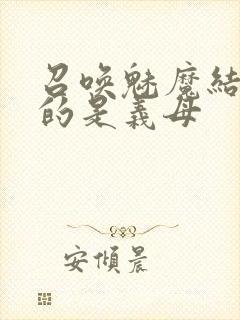 召唤魅魔结
的是義母
安傾晨